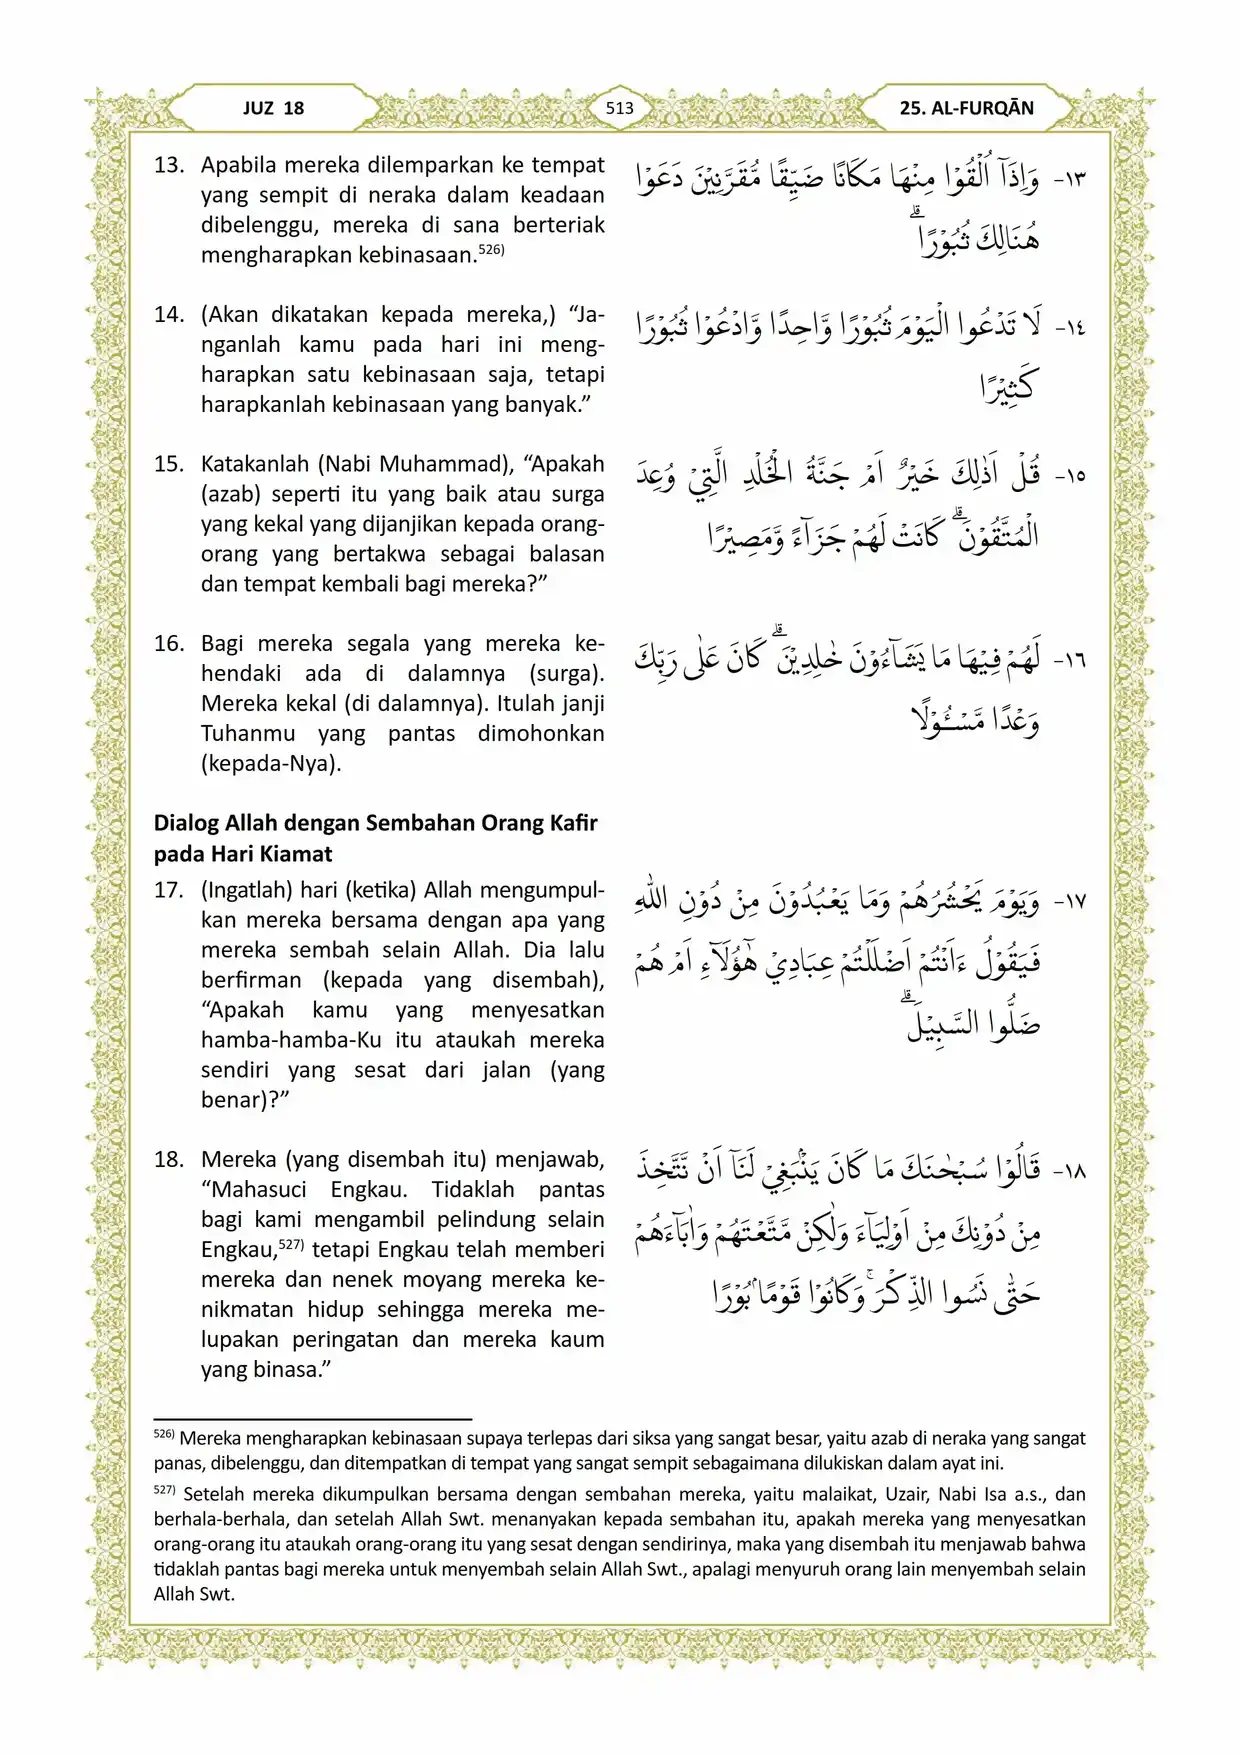 JUZ 18
513
25. AL-FURQĀN
13. Apabila mereka dilemparkan ke tempat
yang sempit di neraka dalam keadaan
dibelenggu, mereka di sana berteriak
mengharapkan kebinasaan.526)
١٣- وَاِذَآ اُلْقُوْا مِنْهَا مَكَانًا ضَيِّقًا مُّقَرَّنِيْنَ دَعَوْا
هُنَالِكَ ثُبُوْرًاۗ
14. (Akan dikatakan kepada mereka,) “Ja-
nganlah kamu pada hari ini meng-
harapkan satu kebinasaan saja, tetapi
harapkanlah kebinasaan yang banyak.”
١٤- لَا تَدْعُوا الْيَوْمَ ثُبُوْرًا وَّاحِدًا وَّادْعُوْا ثُبُوْرًا
كَثِيْرًا
15. Katakanlah (Nabi Muhammad), “Apakah
(azab) seperti itu yang baik atau surga
yang kekal yang dijanjikan kepada orang-
orang yang bertakwa sebagai balasan
dan tempat kembali bagi mereka?”
١٥- قُلْ اَذٰلِكَ خَيْرٌ اَمْ جَنَّةُ الْخُلْدِ الَّتِيْ وُعِدَ
الْمُتَّقُوْنَۗ كَانَتْ لَهُمْ جَزَاۤءً وَّمَصِيْرًا
16. Bagi mereka segala yang mereka ke-
hendaki ada di dalamnya (surga).
Mereka kekal (di dalamnya). Itulah janji
Tuhanmu yang pantas dimohonkan
(kepada-Nya).
١٦- لَهُمْ فِيْهَا مَا يَشَاۤءُوْنَ خٰلِدِيْنَۗ كَانَ عَلٰى رَبِّكَ
وَعْدًا مَّسْـُٔوْلًا
Dialog Allah dengan Sembahan Orang Kafir
pada Hari Kiamat
17. (Ingatlah) hari (ketika) Allah mengumpul-
kan mereka bersama dengan apa yang
mereka sembah selain Allah. Dia lalu
berfirman (kepada yang disembah),
“Apakah kamu yang menyesatkan
hamba-hamba-Ku itu ataukah mereka
sendiri yang sesat dari jalan (yang
benar)?”
١٧- وَيَوْمَ يَحْشُرُهُمْ وَمَا يَعْبُدُوْنَ مِنْ دُوْنِ اللّٰهِ
فَيَقُوْلُ ءَاَنْتُمْ اَضْلَلْتُمْ عِبَادِيْ هٰٓؤُلَاۤءِ اَمْ هُمْ
ضَلُّوا السَّبِيْلَۗ
18. Mereka (yang disembah itu) menjawab,
“Mahasuci Engkau. Tidaklah pantas
bagi kami mengambil pelindung selain
Engkau,527) tetapi Engkau telah memberi
mereka dan nenek moyang mereka ke-
nikmatan hidup sehingga mereka me-
lupakan peringatan dan mereka kaum
yang binasa.”
١٨- قَالُوْا سُبْحٰنَكَ مَا كَانَ يَنْۢبَغِيْ لَنَآ اَنْ نَّتَّخِذَ
مِنْ دُوْنِكَ مِنْ اَوْلِيَاۤءَ وَلٰكِنْ مَّتَّعْتَهُمْ وَاٰبَاۤءَهُمْ
حَتّٰى نَسُوا الذِّكْرَۚ وَكَانُوْا قَوْمًاۢ بُوْرًا
526) Mereka mengharapkan kebinasaan supaya terlepas dari siksa yang sangat besar, yaitu azab di neraka yang sangat
panas, dibelenggu, dan ditempatkan di tempat yang sangat sempit sebagaimana dilukiskan dalam ayat ini.
527) Setelah mereka dikumpulkan bersama dengan sembahan mereka, yaitu malaikat, Uzair, Nabi Isa a.s., dan
berhala-berhala, dan setelah Allah Swt. menanyakan kepada sembahan itu, apakah mereka yang menyesatkan
orang-orang itu ataukah orang-orang itu yang sesat dengan sendirinya, maka yang disembah itu menjawab bahwa
tidaklah pantas bagi mereka untuk menyembah selain Allah Swt., apalagi menyuruh orang lain menyembah selain
Allah Swt.